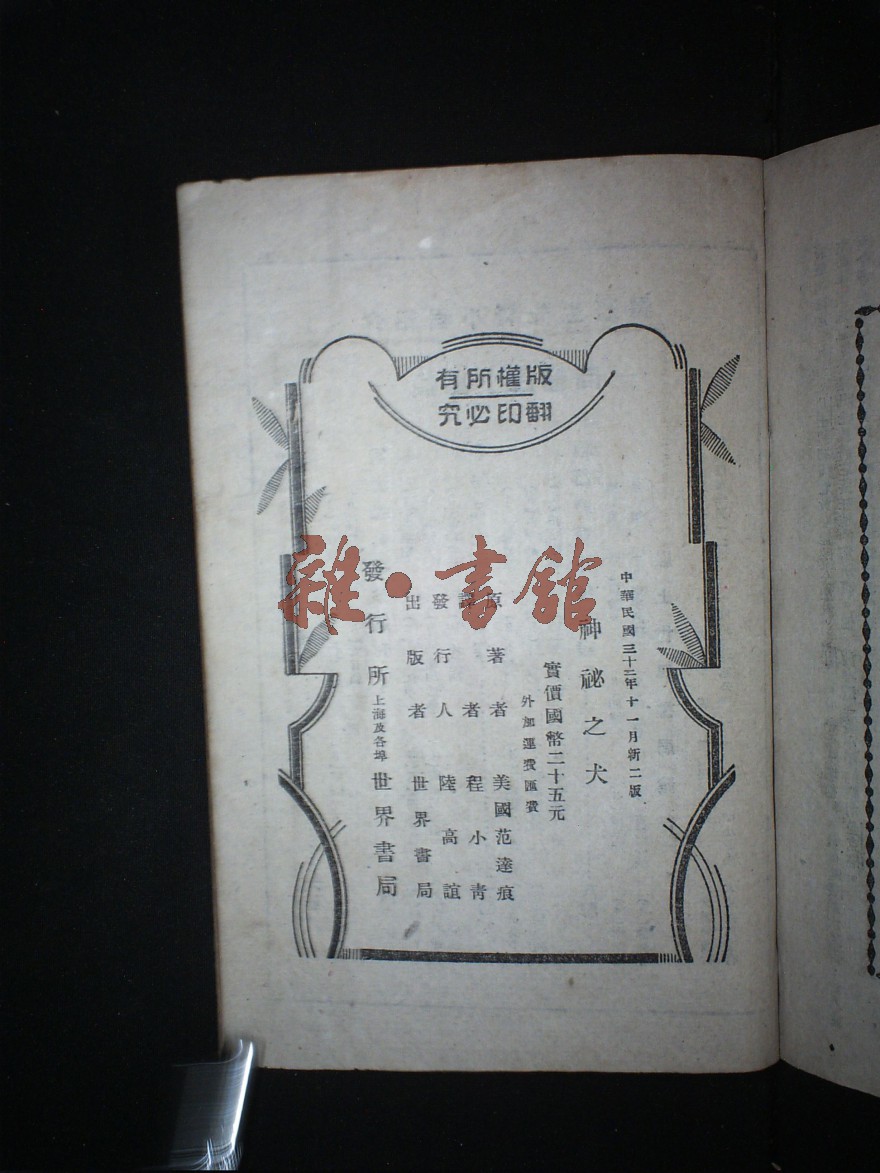 版權所有
翻印必究
中華民國三十二年十一月新二版
神祕之犬
實價國幣二十五元
外加運費匯費
原著者 美國范達痕
譯者 程小青
發行人 陸高誼
出版者 世界書局
發行所 上海及各埠 世界書局
雜·書館